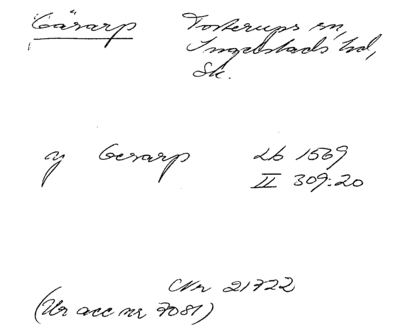 Gärarp Tosterups sn,
Ingelstads hd,
Sk.
y Gerarp Lb 1569
II 309:20
Nr 21722
(Ur acc nr 7081)